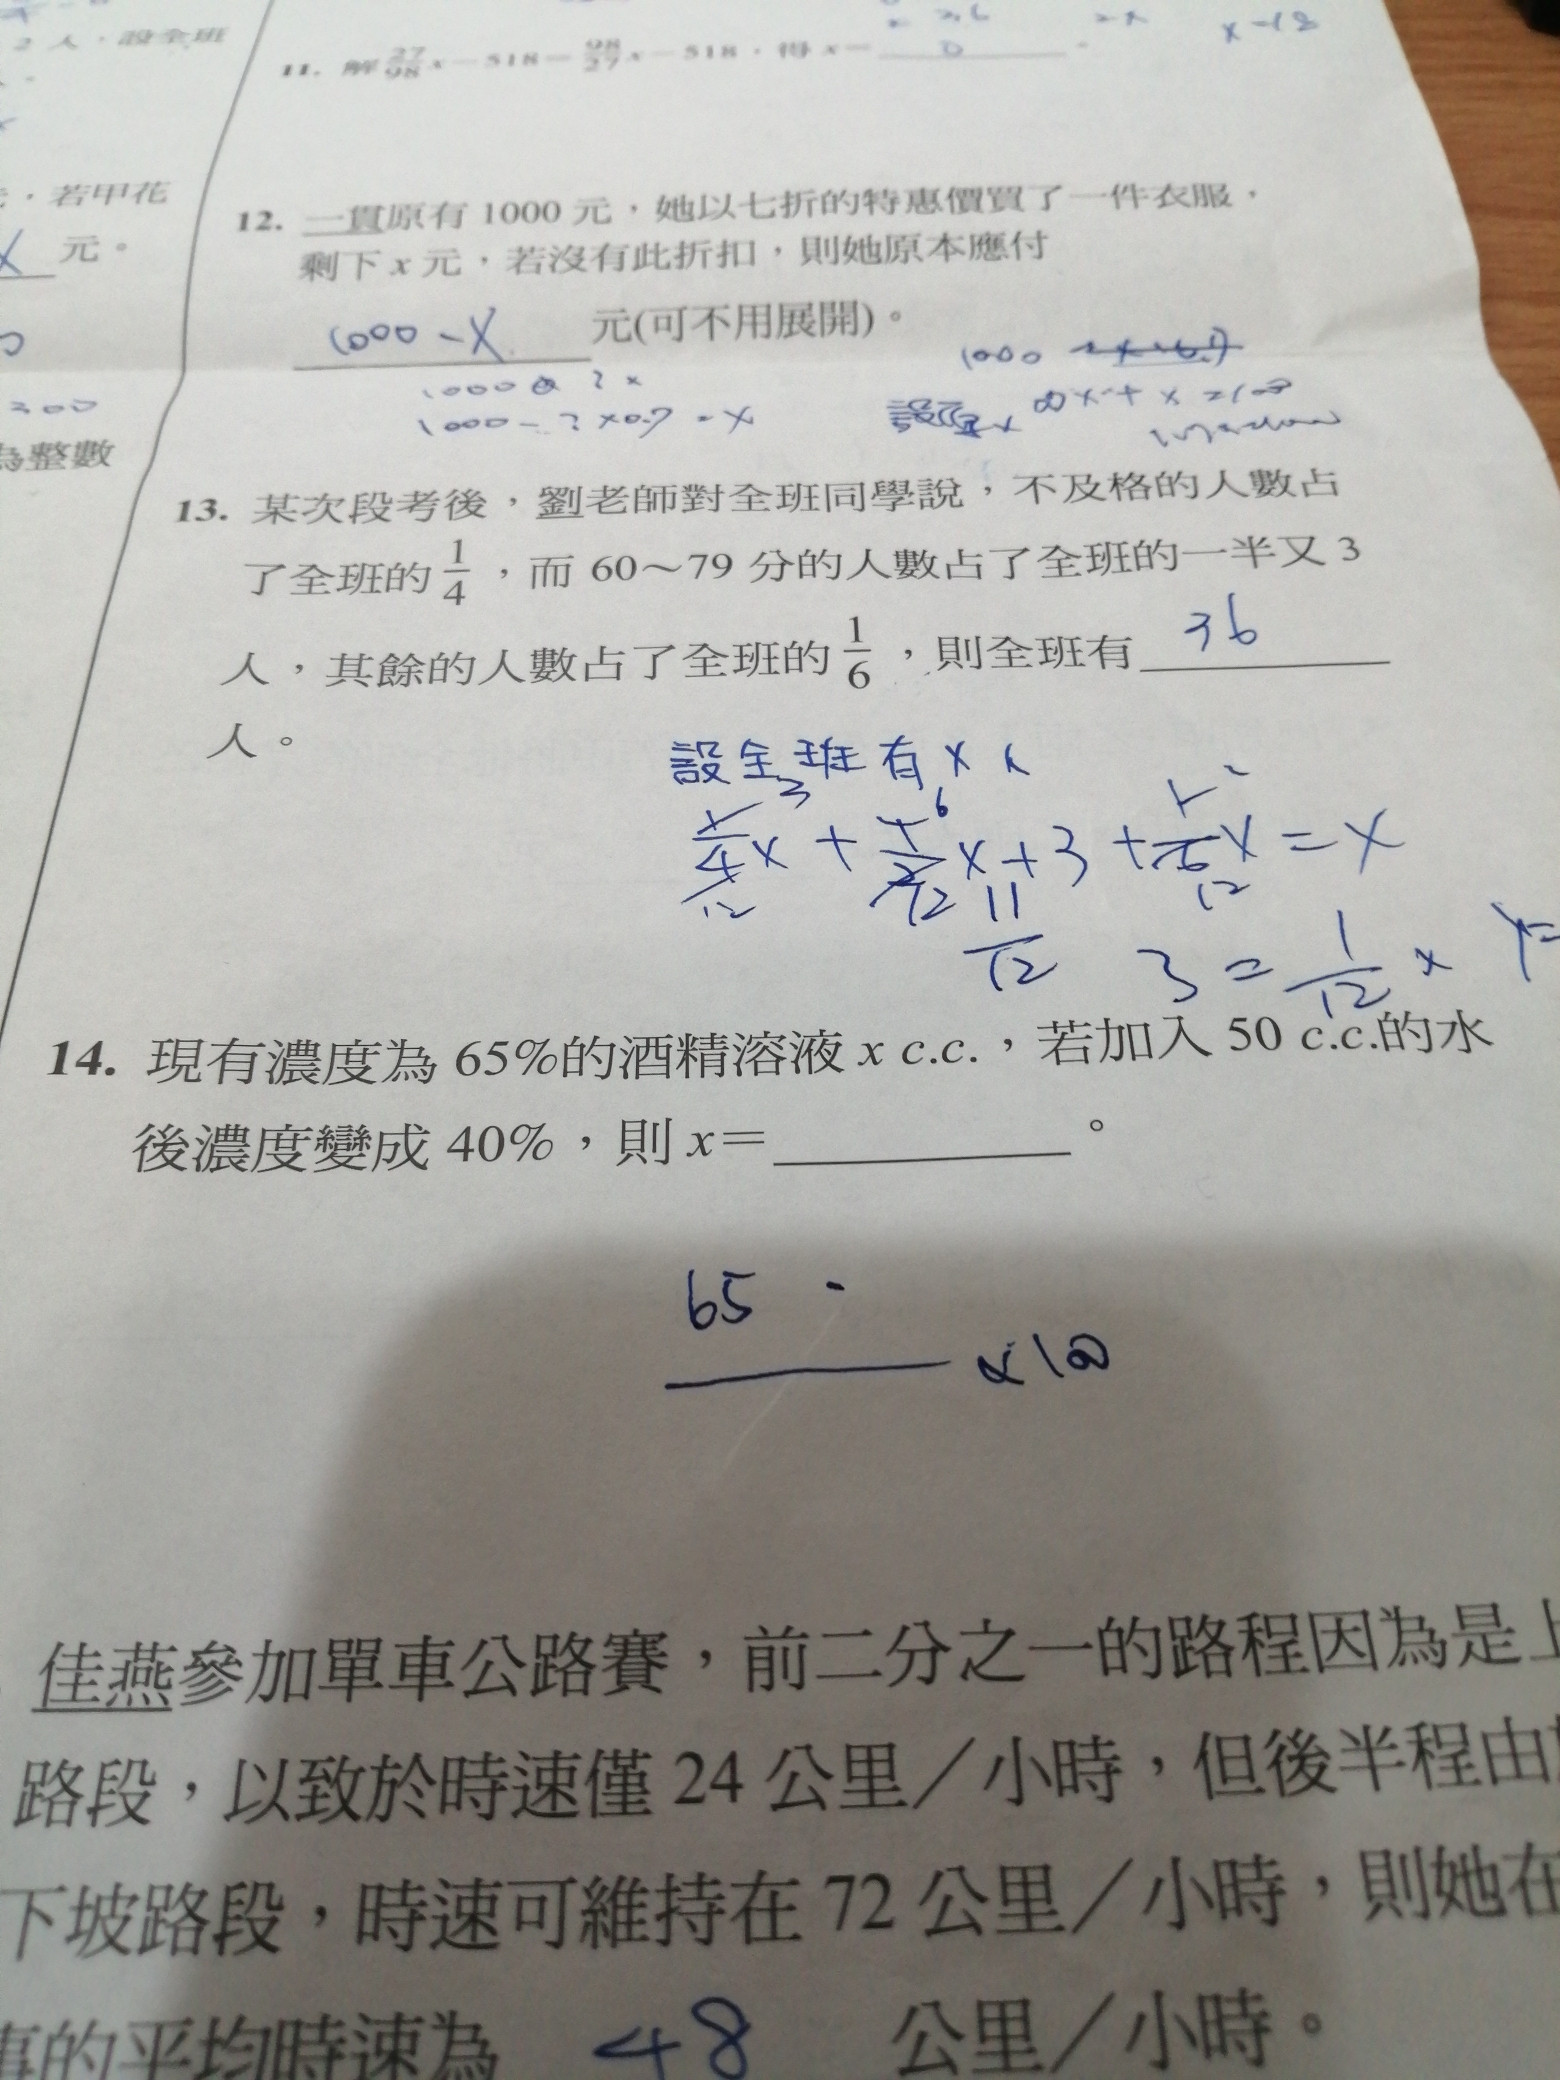 2人,設全班
11. 解27/98x-518=98/27x-518,得x=0。
x=18
若甲花
x元。
300
為整數
12. 一貫原有1000元,她以七折的特惠價買了一件衣服,
剩下x元,若沒有此折扣,則她原本應付
1000-x元(可不用展開)。
1000-?×0.7=x
13. 某次段考後,劉老師對全班同學說,不及格的人數占
了全班的1/4,而60~79分的人數占了全班的一半又3
人,其餘的人數占了全班的1/6,則全班有36
人。
設全班有x人
1/4x+1/2x+3+1/6x=x
3 6 2
12 12 12
11/12 3=1/12x
14. 現有濃度為65%的酒精溶液x c.c.,若加入50 c.c.的水
後濃度變成40%,則x=。
65
×100
佳燕參加單車公路賽,前二分之一的路程因為是上
路段,以致於時速僅24公里/小時,但後半程由於
下坡路段,時速可維持在72公里/小時,則她在
的平均時速為48公里/小時。